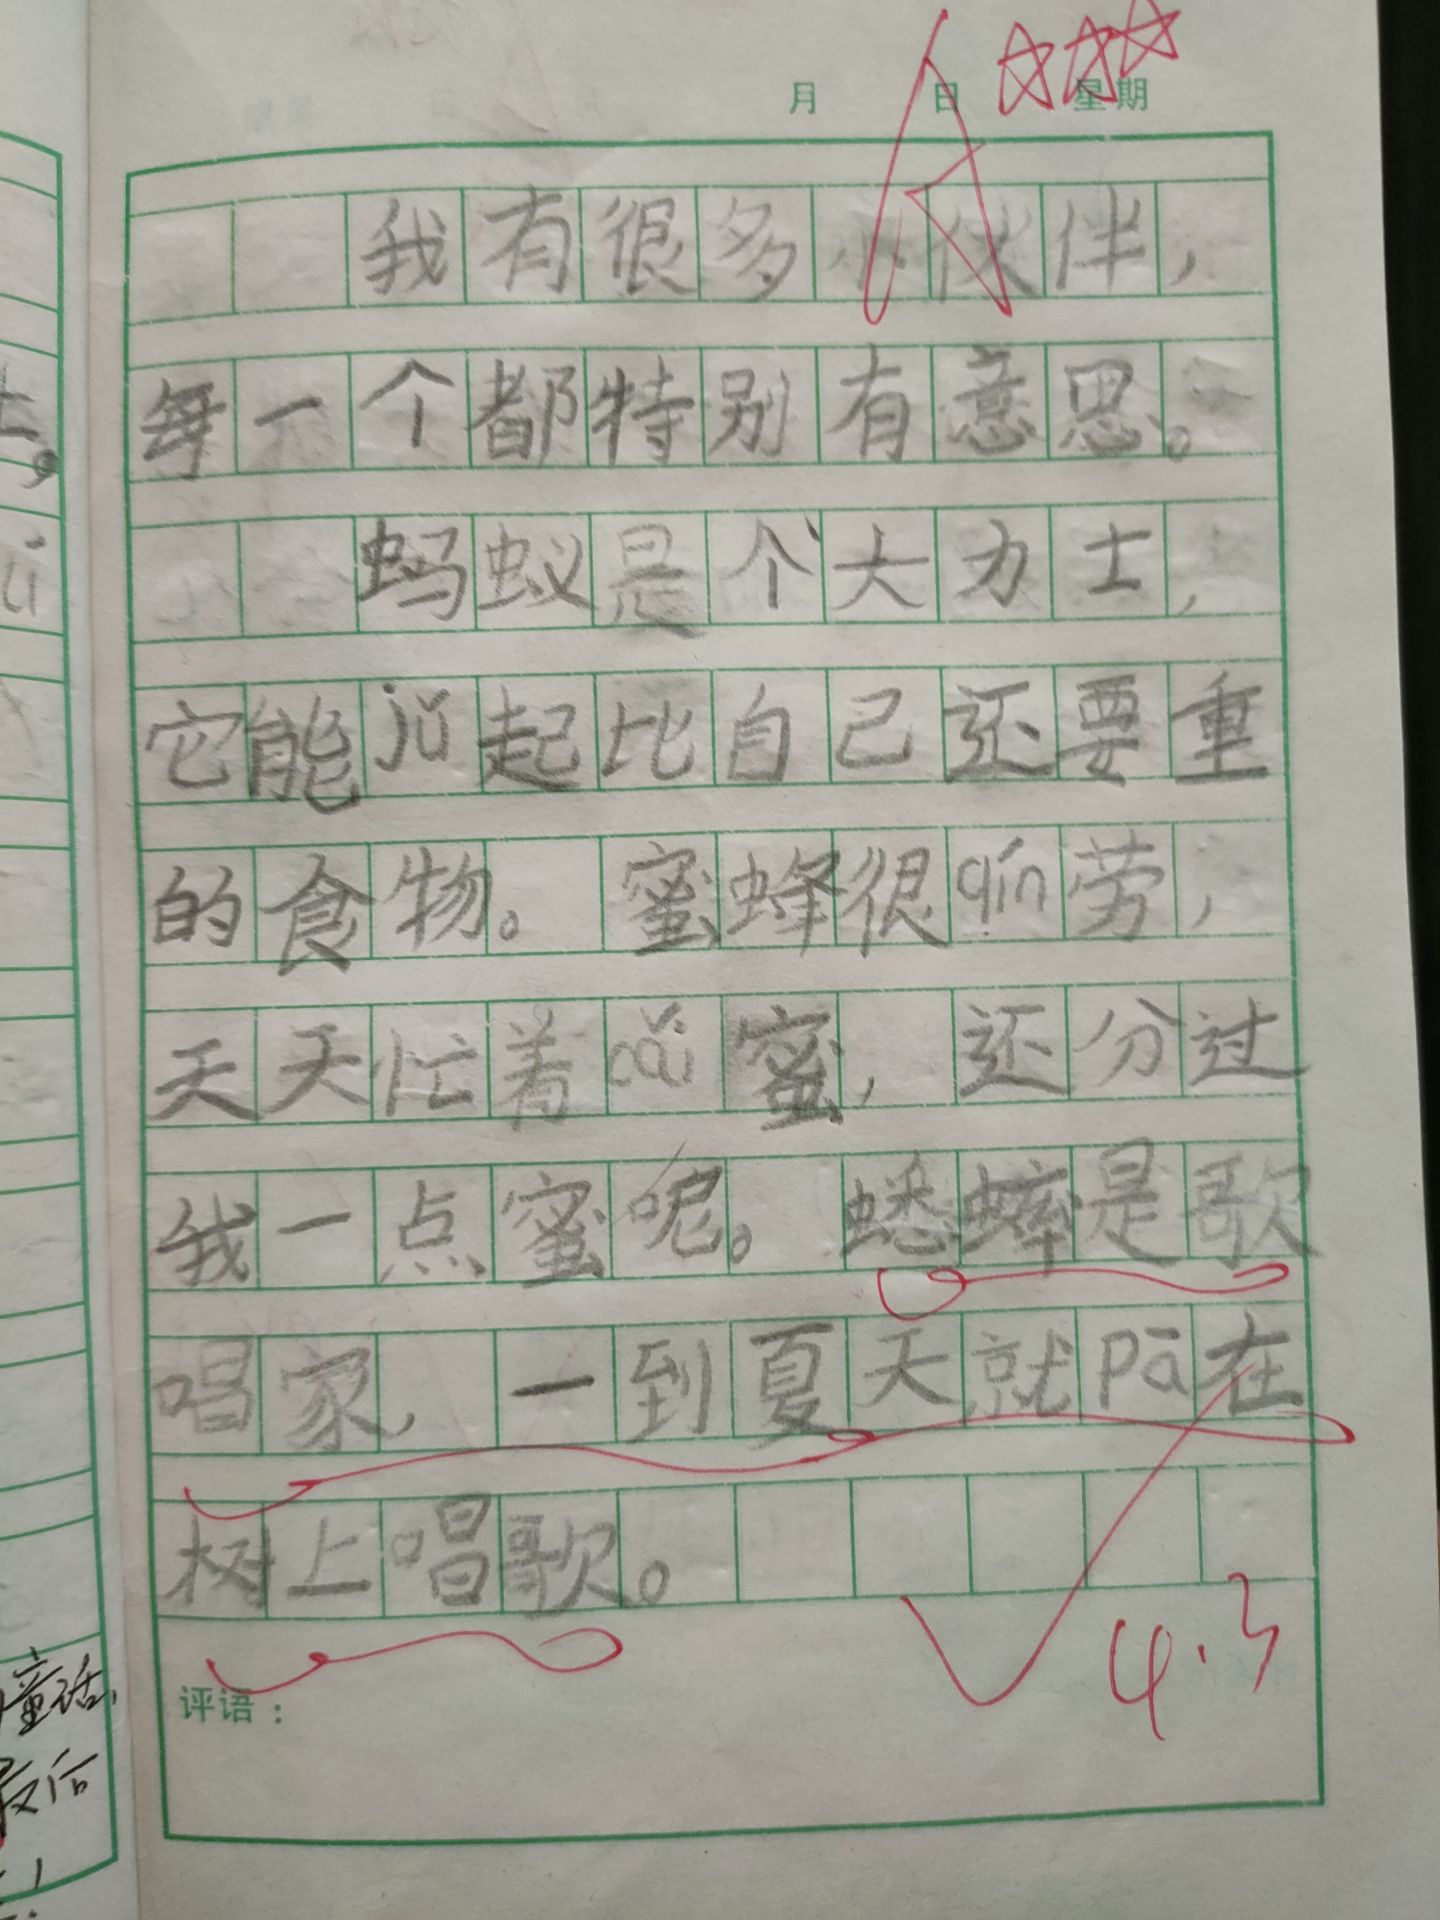 月 日 星期
A
我有很多小伙伴，
每一个都特别有意思。
蚂蚁是个大力士，
它能jǔ起比自己还要重
的食物。蜜蜂很qín劳，
天天忙着cǎi蜜，还分过
我一点蜜呢。蟋蟀是歌
唱家，一到夏天就pā在
树上唱歌。
4.3
评语：
童话，
最后